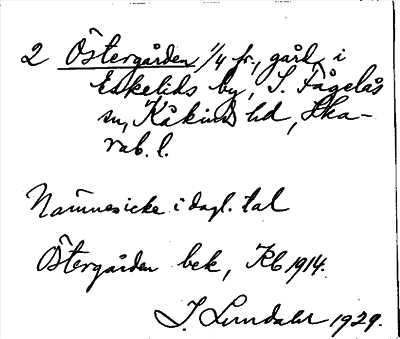 2 Östergården 1/4 fr., gård i
Eskelids by, S. Fågelås
sn, Kåkinds hd, Ska-
rab. l.
Namnes icke i dagl. tal
Östergården bek, Kb 1914.
J. Lundahl 1929.